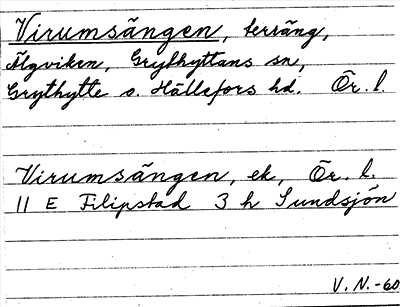 Virumsängen, terräng,
Älgviken, Grythyttans sn,
Grythytte o. Hällefors hd. Ör. l.
Virumsängen, ek, Ör. l.
11 E Filipstad 3 h Sundsjön
V. N. -60